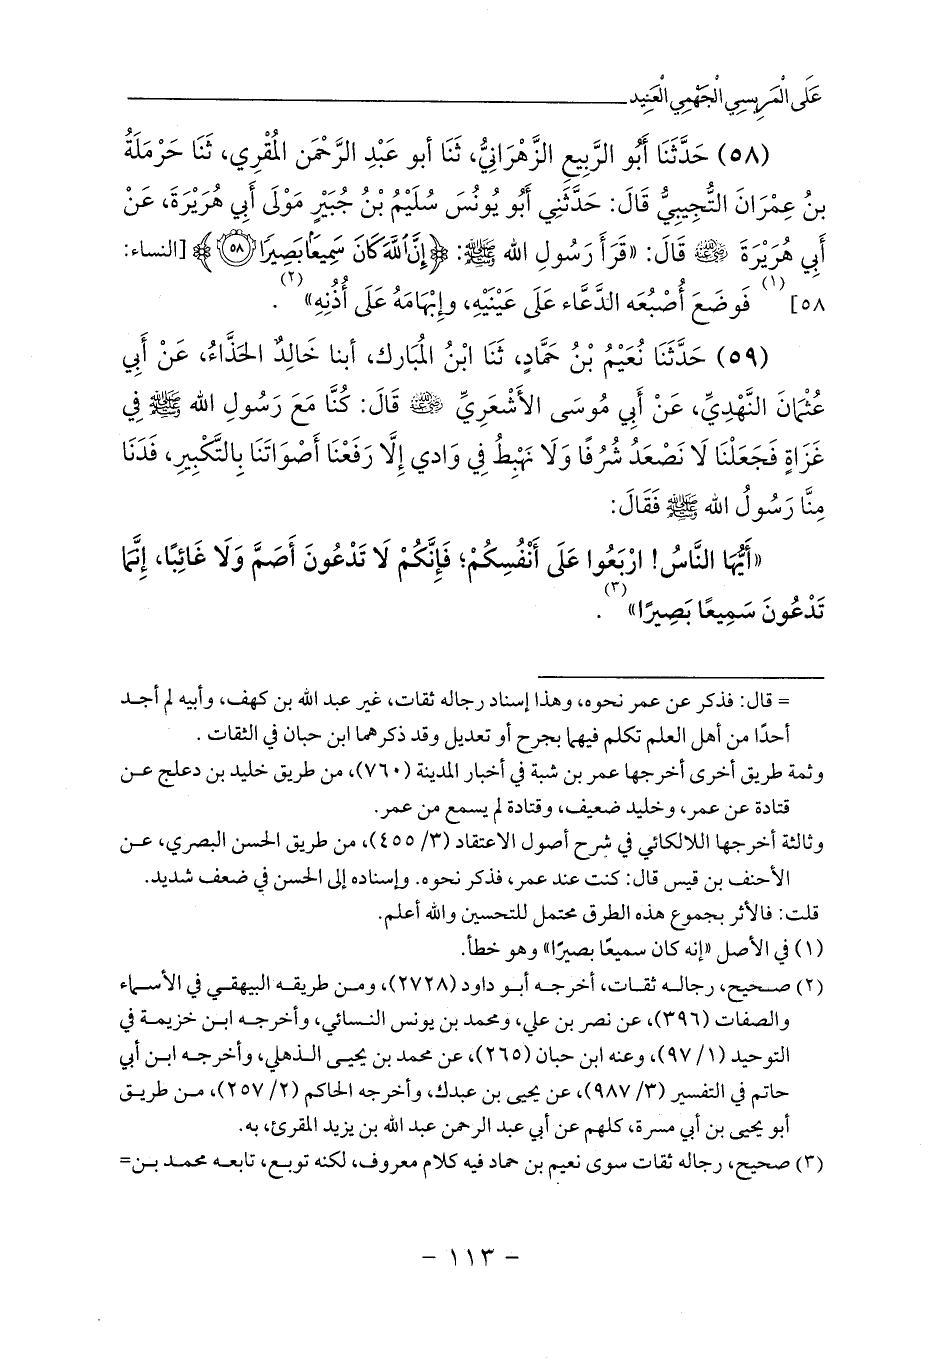 عَلَى الْمَرِيسِي الْجَهْمِي الْعَنِيد
(٥٨) حَدَّثَنَا أَبُو الرَّبِيعِ الزَّهْرَانِيُّ، ثَنَا أبو عَبْدِ الرَّحْمَنِ المُقْرِي، ثَنَا حَرْمَلَةُ
بنُ عِمْرَانَ التُّجِيبِيُّ قَالَ: حَدَّثَنِي أَبُو يُونُسَ سُلَيْمُ بْنُ جُبَيْرٍ مَوْلَى أَبِي هُرَيْرَةَ، عَنْ
أَبِي هُرَيْرَةَ ﵁ قَالَ: «قَرَأَ رَسُولِ الله ﷺ: ﴿إِنَّ ٱللَّهَ كَانَ سَمِيعًۢا بَصِيرًا ٥٨﴾ [النساء:
٥٨](١) فَوضَعَ أُصْبُعَه الدَّعَّاء عَلَى عَيْنَيْهِ، وإِبْهَامَهُ عَلَى أُذُنِهِ»(٢).
(٥٩) حَدَّثَنَا نُعَيْمُ بْنُ حَمَّادٍ، ثَنَا ابْنُ المُبَارك، أبنا خَالِدٌ الحَذَّاءُ، عَنْ أَبِي
عُثْمَانَ النَّهْدِيِّ، عَنْ أَبِي مُوسَى الأَشْعَرِيِّ ﵁ قَالَ: كُنَّا مَعَ رَسُولِ الله ﷺ فِي
غَزَاةٍ فَجَعَلْنَا لَا نَصْعَدُ شُرُفًا وَلَا نَهْبِطُ فِي وَادِي إِلَّا رَفَعْنَا أَصْوَاتَنَا بِالتَّكْبِيرِ، فَدَنَا
مِنَّا رَسُولُ الله ﷺ فَقَالَ:
«أَيُّهَا النَّاسُ! ارْبَعُوا عَلَى أَنْفُسِكُمْ؛ فَإِنَّكُمْ لَا تَدْعُونَ أَصَمَّ وَلَا غَائِبًا، إِنَّمَا
تَدْعُونَ سَمِيعًا بَصِيرًا»(٣).
= قال: فذكر عن عمر نحوه، وهذا إسناد رجاله ثقات، غير عبد الله بن كهف، وأبيه لم أجد
أحدًا من أهل العلم تكلم فيهما بجرح أو تعديل وقد ذكرهما ابن حبان في الثقات .
وثمة طريق أخرى أخرجها عمر بن شبة في أخبار المدينة (٧٦٠)، من طريق خليد بن دعلج عن
قتادة عن عمر، وخليد ضعيف، وقتادة لم يسمع من عمر.
وثالثة أخرجها اللالكائي في شرح أصول الاعتقاد (٣/ ٤٥٥)، من طريق الحسن البصري، عن
الأحنف بن قيس قال: كنت عند عمر، فذكر نحوه. وإسناده إلى الحسن في ضعف شديد.
قلت: فالأثر بجموع هذه الطرق محتمل للتحسين والله أعلم.
(١) في الأصل «إنه كان سميعًا بصيرًا» وهو خطأ.
(٢) صحيح، رجاله ثقات، أخرجه أبو داود (٢٧٢٨)، ومن طريقه البيهقي في الأسماء
والصفات (٣٩٦)، عن نصر بن علي، ومحمد بن يونس النسائي، وأخرجه ابن خزيمة في
التوحيد (١/ ٩٧)، وعنه ابن حبان (٢٦٥)، عن محمد بن يحيى الذهلي، وأخرجه ابن أبي
حاتم في التفسير (٣/ ٩٨٧)، عن يحيى بن عبدك، وأخرجه الحاكم (٢/ ٢٥٧)، من طريق
أبو يحيى بن أبي مسرة، كلهم عن أبي عبد الرحمن عبد الله بن يزيد المقرئ، به.
(٣) صحيح، رجاله ثقات سوى نعيم بن حماد فيه كلام معروف، لكنه توبع، تابعه محمد بن=
- ١١٣ -